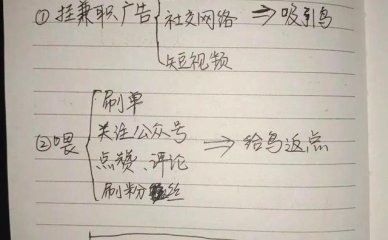 ①挂兼职广告 社交网络 ⇒ 吸引鸟
短视频
刷单
关注公众号
②喂 ⇒ 给鸟返点
点赞、评论
刷粉丝